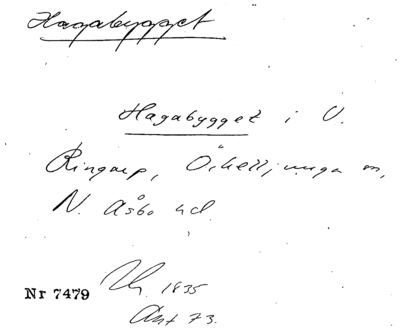 Hagabygget
Hagabygget i V.
Ringarp, Örkelljunga sn,
N. Åsbo hd.
Nr 7479
1835
Ant 73.